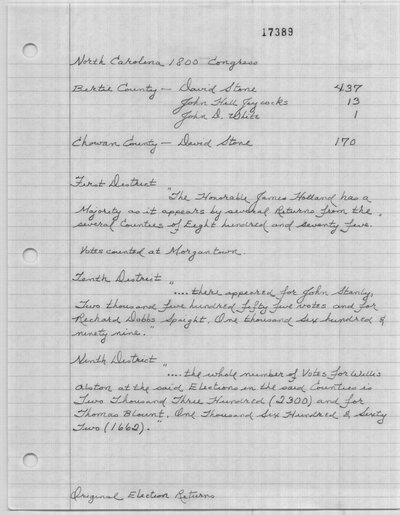 17389
North Carolina 1800 Congress
Bertie County - David Stone 437
John Hall Jaycocks 13
John D. White 1
Chowan County - David Stone 170
First District
"The Honorable James Holland has a
Majority as it appears by several Returns from the
several Counties of Eight hundred and seventy five.
Votes counted at Morgantown.
Tenth District
".... there appeared for John Stanly,
Two thousand five hundred fifty five votes and for
Richard Dobbs Spaight. One thousand six hundred &
ninety nine."
Ninth District
".... the whole number of Votes for Willis
Alston at the said Elections in the said Counties is
Two Thousand Three Hundred (2300) and for
Thomas Blount. One Thousand Six Hundred & Sixty
Two (1662)."
Original Election Returns